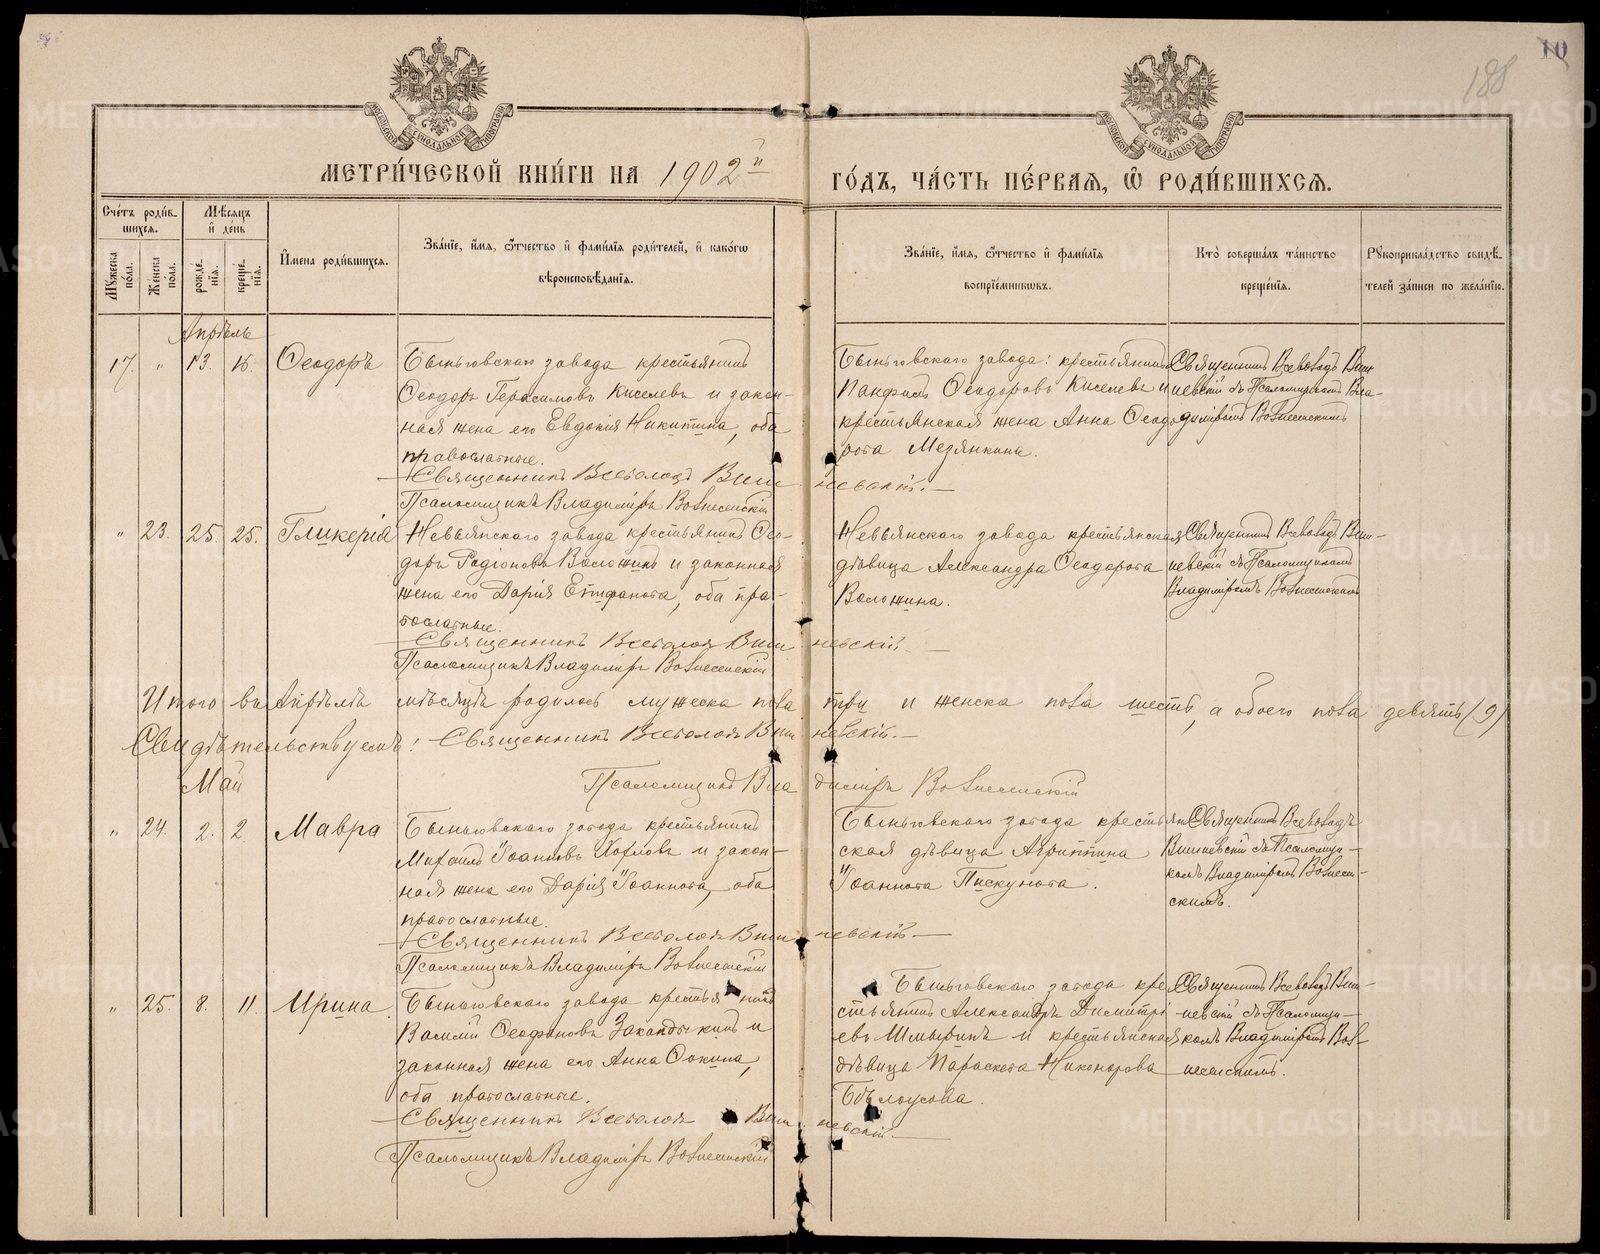 188
10
МОСКОВСКОЙ СѴНОДАЛЬНОЙ ТИПОГРАФІИ
МОСКОВСКОЙ СѴНОДАЛЬНОЙ ТИПОГРАФІИ
МЕТРИ́ЧЕСКОЙ КНИ́ГИ НА 1902й ГО́ДЪ, ЧА́СТЬ ПЕ́РВАЯ, Ѽ РОДИ́ВШИХСЯ.
Сче́тъ роди́в-
шихся.
Мѣ́сяцъ
и҆ день
Му́жеска по́ла.
Же́нска по́ла.
рожде́-
нїя.
креще́-
нїя.
И҆мена роди́вшихся.
Зва́нїе, и҆́мя, ѻ҆́тчество и҆ фами́лїя роди́телей, и҆ како́гѡ
вѣроисповѣ́данїя.
Зва́нїе, и҆́мя, ѻ҆́тчество и҆ фами́лїя
воспрїе́мникѡвъ.
Кто̀ соверша́лъ та́инство
креще́нїя.
Рꙋкоприкла́дство свидѣ́-
телей за́писи по жела́нїю.
Апрѣль
17. " 13. 15. Ѳеодоръ
Быньговскаго завода крестьянинъ
Ѳеодоръ Герасимовъ Киселевъ и закон-
ная жена его Евдокія Никитина, оба
православные.
Священникъ Всеволодъ Вишневскій.
Псаломщикъ Владиміръ Вознесенскій
Быньговскаго завода: крестьянинъ
Панфилъ Ѳеодоровъ Киселевъ и
крестьянская жена Анна Ѳеодо-
рова Мезянкина.
Священникъ Всеволодъ Виш-
невскій съ Псаломщикомъ Вла-
диміромъ Вознесенскимъ
" 23. 25. 25. Гликерія
Невьянскаго завода крестьянинъ Ѳео-
доръ Родіоновъ Воложинъ и законная
жена его Дарія Епифанова, оба пра-
вославные.
Священникъ Всеволодъ Вишневскій
Псаломщикъ Владиміръ Вознесенскій
Невьянскаго завода крестьянская
дѣвица Александра Ѳеодорова
Воложина.
Священникъ Всеволодъ Виш-
невскій съ Псаломщикомъ
Владиміромъ Вознесенскимъ
Итого въ Апрѣлѣ мѣсяцѣ родилось мужеска пола три и женска пола шесть, а обоего пола девять (9)
Свидѣтельствуемъ: Священникъ Всеволодъ Вишневскій.
Псаломщикъ Владиміръ Вознесенскій
Май
" 24. 2. 2 Мавра
Быньговскаго завода крестьянинъ
Михаилъ Іоанновъ Хохловъ и закон-
ная жена его Дарія Іоаннова, оба
православные.
Священникъ Всеволодъ Вишневскій
Псаломщикъ Владиміръ Вознесенскій
Быньговскаго завода крестьян-
ская дѣвица Агриппина
Іоаннова Пискунова.
Священникъ Всеволодъ
Вишневскій съ Псаломщи-
комъ Владиміромъ Вознесен-
скимъ.
" 25. 8. 11. Ирина
Быньговскаго завода крестьянинъ
Василій Ѳеофановъ и
законная жена его Анна Фокина,
оба православные.
Священникъ Всеволодъ Вишневскій
Псаломщикъ Владиміръ Вознесенскій
Быньговскаго завода кре-
стьянинъ Александръ Димитрі-
евъ Шмыринъ и крестьянская
дѣвица Параскева Никонорова
Бѣлоусова.
Священникъ Всеволодъ Виш-
невскій съ Псаломщи-
комъ Владиміромъ Воз-
несенскимъ.
METRIKI.GASO-URAL.RU